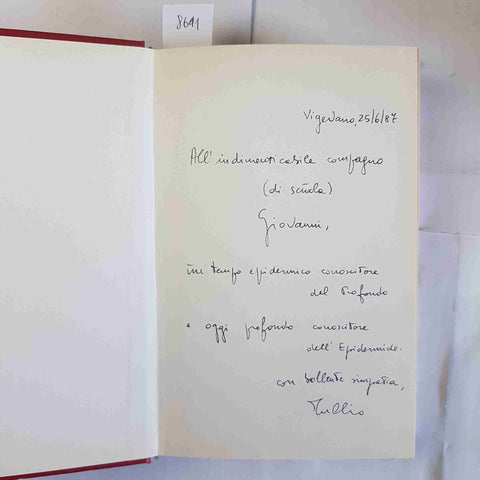 8641
Vigevano, 25/6/87
All'indimenticabile compagno
(di scuola)
Giovanni,
un tempo epidermico conoscitore
del Profondo
e oggi profondo conoscitore
dell'Epidermide.
con bollente simpatia,
Tullio